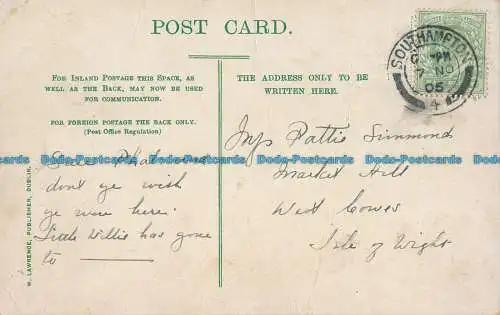 POST CARD.
FOR INLAND POSTAGE THIS SPACE, AS
WELL AS THE BACK, MAY NOW BE USED
FOR COMMUNICATION.
FOR FOREIGN POSTAGE THE BACK ONLY.
(Post Office Regulation)
THE ADDRESS ONLY TO BE
WRITTEN HERE.
SOUTHAMPTON
PM
7 NO
05
W. LAWRENCE, PUBLISHER, DUBLIN.
dont ye wish
ye were here.
Little Willie has gone
to
Pattie Simmonds
Market Hill
West Cowes
Isle of Wight
Dodo-Postcards Dodo-Postcards Dodo-Postcards Dodo-Postcards Dodo-Postcards